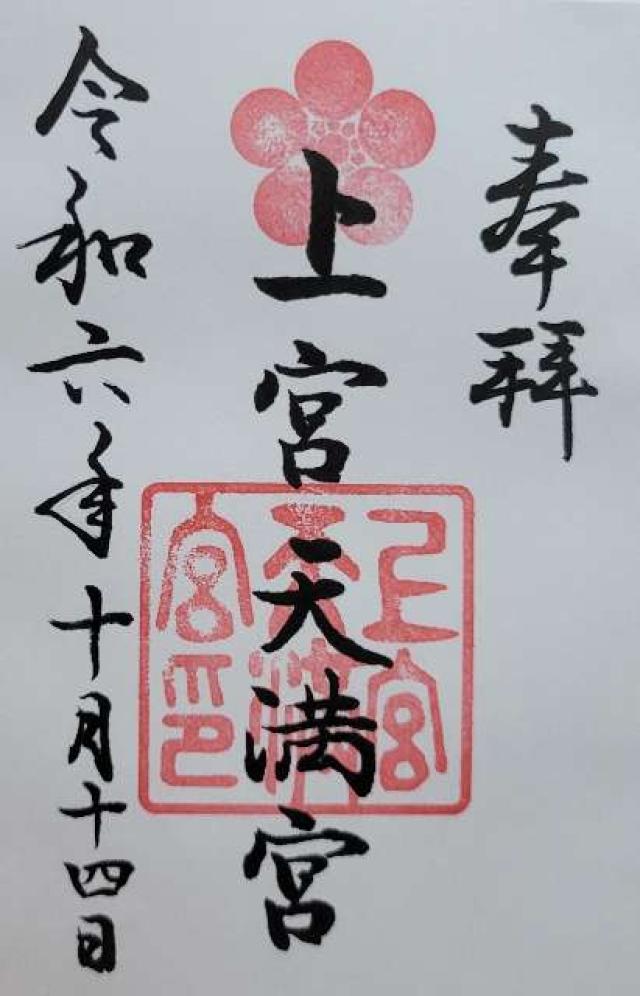 奉拝
上宮天満宮
上宮
天満
宮印
令和六年十月十四日